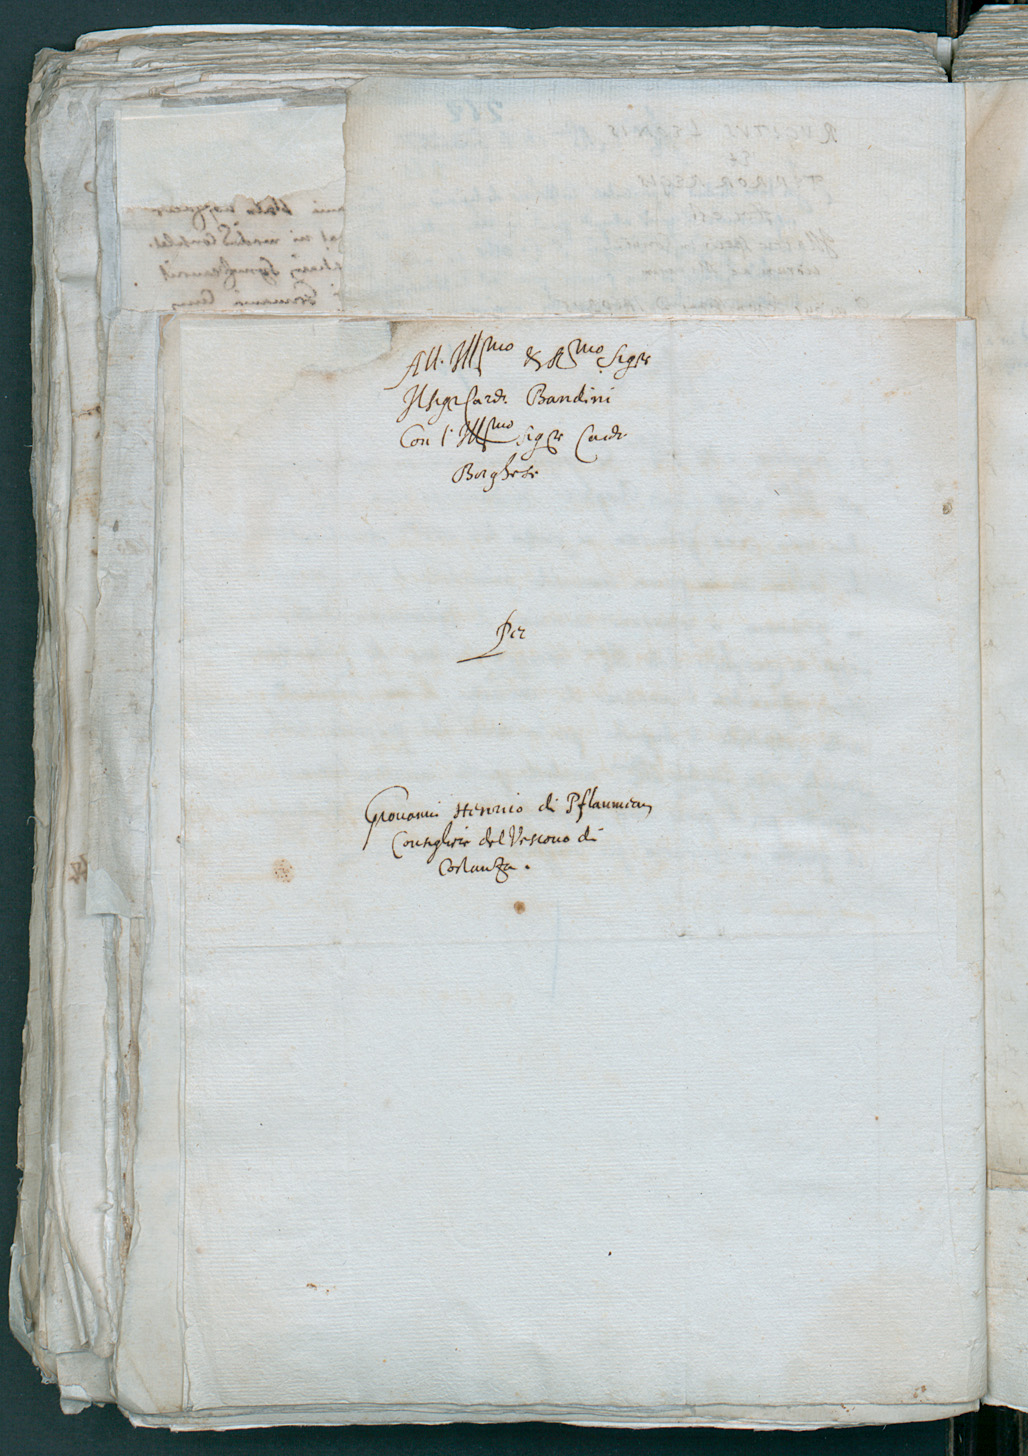 All. Ill.mo & R.mo Sigre
Il sigr Card. Bandini
Con l' Ill.mo sigre Card.
Borghese
Per
Giouanni Henrico di Pflaumern
Consigliere del Vescouo di
Costanza.